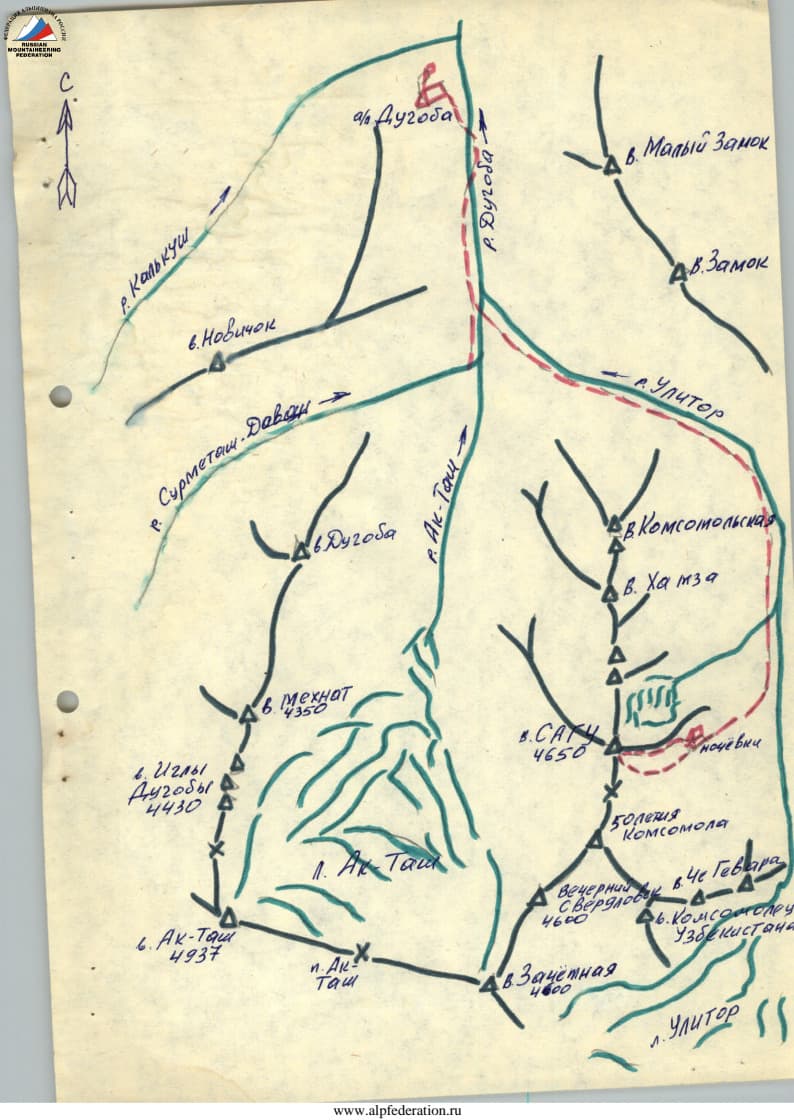 ФЕДЕРАЦИЯ АЛЬПИНИЗМА РОССИИ
RUSSIAN
MOUNTAINEERING
FEDERATION
С
а/л Дугоба
в. Малый Замок
р. Дугоба
р. Калькуш
в. Замок
в. Новичок
р. Улитор
р. Сурметаш-Даван
р. Ак-Таш
в. Комсомольская
в Дугоба
в. Хамза
в. Мехнат
4350
в. САГУ
4650
ночёвки
в. Иглы
Дугобы
4430
50летия
Комсомола
л. Ак-Таш
в. Че Гевара
Вечерний
Свердловск
4600
в. Комсомолец
Узбекистана
в. Ак-Таш
4937
п. Ак-
Таш
в. Зачётная
4600
л. Улитор
www.alpfederation.ru